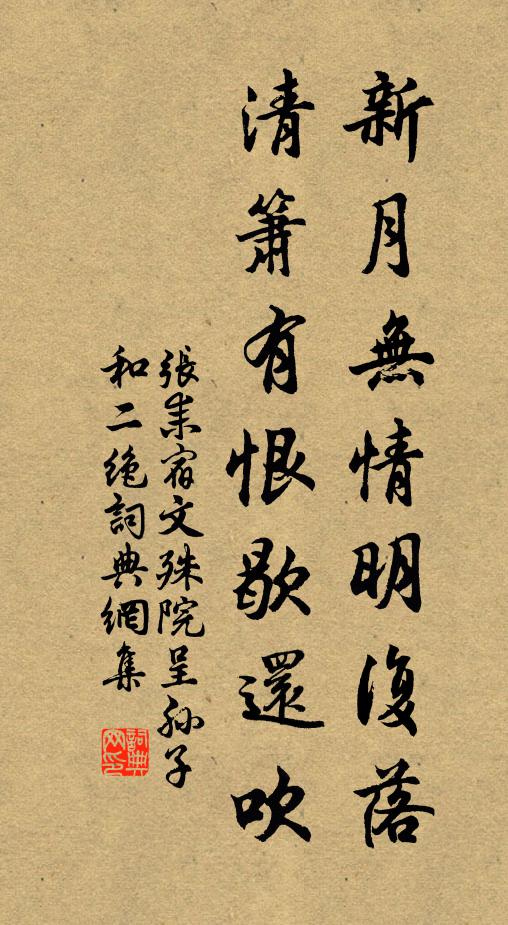 新月無情明復落
清簫有恨歇還吹
張耒宿文殊院呈孙子
和二絶詞典網集
詞典
网